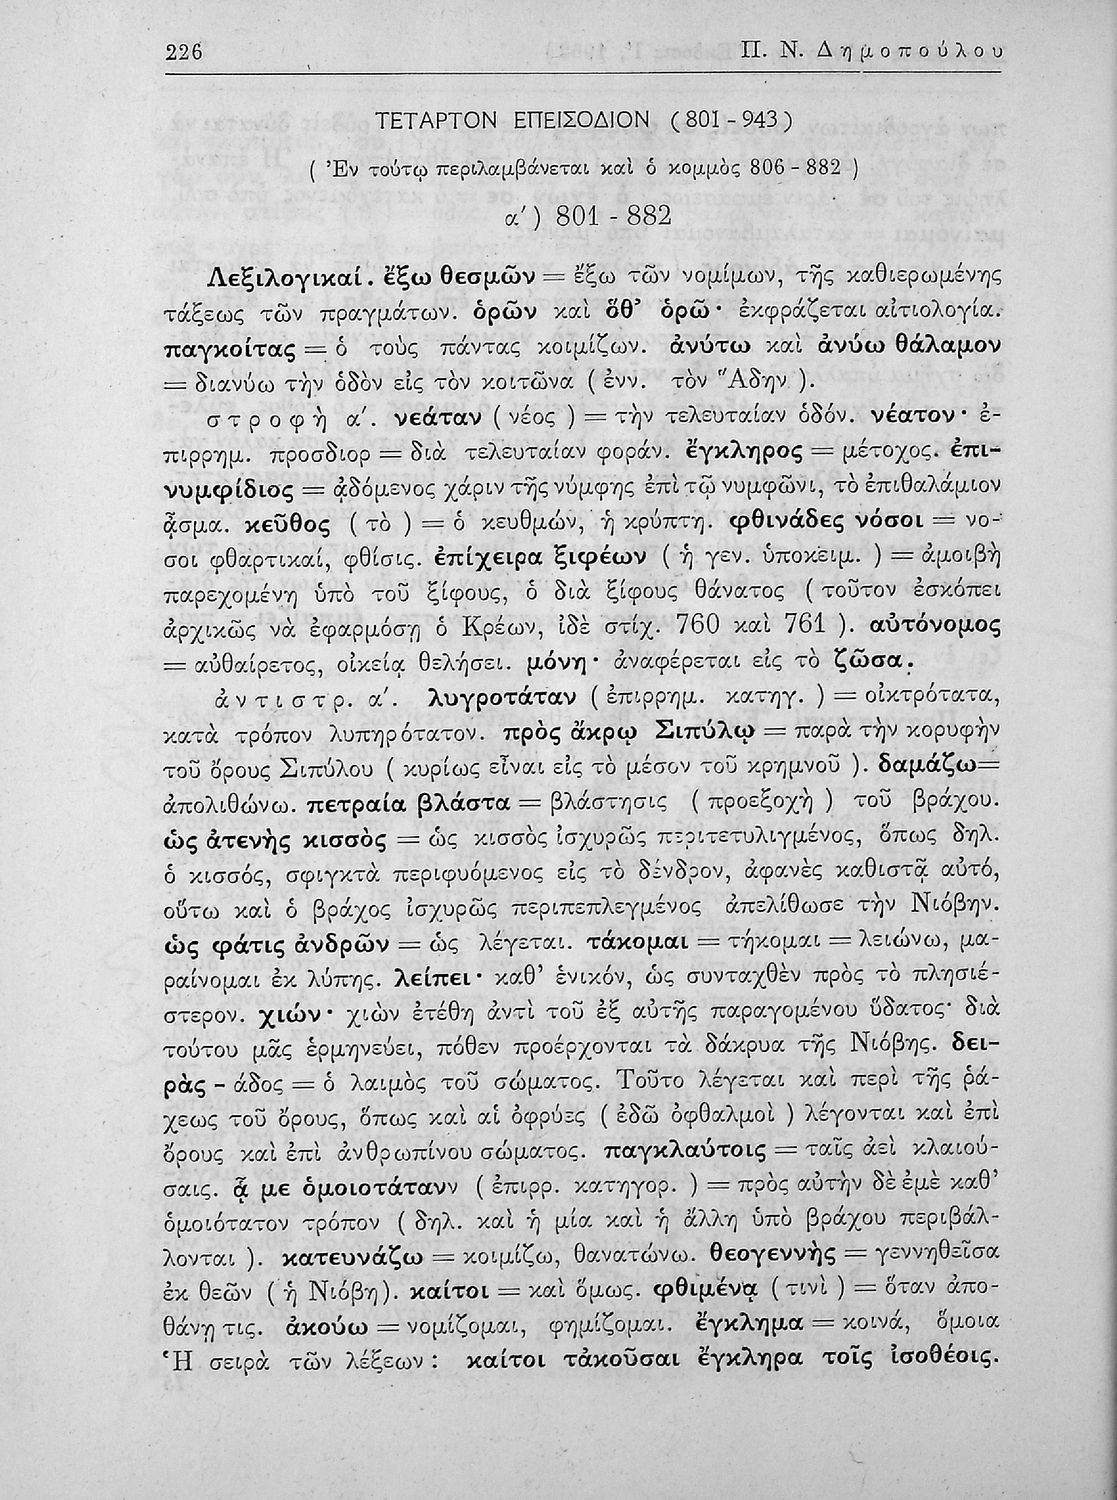 226 Π. Ν. Δημοπούλου
ΤΕΤΑΡΤΟΝ ΕΠΕΙΣΟΔΙΟΝ (801-943)
( Ἐν τούτῳ περιλαμβάνεται καὶ ὁ κομμὸς 806-882 )
α΄) 801 - 882
Λεξιλογικαί. ἔξω θεσμῶν = ἔξω τῶν νομίμων, τῆς καθιερωμένης
τάξεως τῶν πραγμάτων. ὁρῶν καὶ ὅθ’ ὁρῶ· ἐκφράζεται αἰτιολογία.
παγκοίτας = ὁ τοὺς πάντας κοιμίζων. ἀνύτω καὶ ἀνύω θάλαμον
= διανύω τὴν ὁδὸν εἰς τὸν κοιτῶνα ( ἐνν. τὸν Ἅδην ).
στροφὴ α΄. νεάταν ( νέος ) = τὴν τελευταίαν ὁδόν. νέατον· ἐ-
πιρρημ. προσδιορ = διὰ τελευταίαν φοράν. ἔγκληρος = μέτοχος. ἐπι-
νυμφίδιος = ᾀδόμενος χάριν τῆς νύμφης ἐπὶ τῷ νυμφῶνι, τὸ ἐπιθαλάμιον
ᾆσμα. κεῦθος ( τὸ ) = ὁ κευθμών, ἡ κρύπτη. φθινάδες νόσοι = νο-
σοι φθαρτικαί, φθίσις. ἐπίχειρα ξιφέων ( ἡ γεν. ὑποκειμ. ) = ἀμοιβὴ
παρεχομένη ὑπὸ τοῦ ξίφους, ὁ διὰ ξίφους θάνατος ( τοῦτον ἐσκόπει
ἀρχικῶς νὰ ἐφαρμόσῃ ὁ Κρέων, ἰδὲ στίχ. 760 καὶ 761 ). αὐτόνομος
= αὐθαίρετος, οἰκείᾳ θελήσει. μόνη· ἀναφέρεται εἰς τὸ ζῶσα.
ἀντιστρ. α΄. λυγροτάταν ( ἐπιρρημ. κατηγ. ) = οἰκτρότατα,
κατὰ τρόπον λυπηρότατον. πρὸς ἄκρῳ Σιπύλῳ = παρὰ τὴν κορυφὴν
τοῦ ὄρους Σιπύλου ( κυρίως εἶναι εἰς τὸ μέσον τοῦ κρημνοῦ ). δαμάζω=
ἀπολιθώνω. πετραία βλάστα = βλάστησις ( προεξοχὴ ) τοῦ βράχου.
ὡς ἀτενὴς κισσὸς = ὡς κισσὸς ἰσχυρῶς περιτετυλιγμένος, ὅπως δηλ.
ὁ κισσός, σφιγκτὰ περιφυόμενος εἰς τὸ δένδρον, ἀφανὲς καθιστᾷ αὐτό,
οὕτω καὶ ὁ βράχος ἰσχυρῶς περιπεπλεγμένος ἀπελίθωσε τὴν Νιόβην.
ὡς φάτις ἀνδρῶν = ὡς λέγεται. τάκομαι = τήκομαι = λειώνω, μα-
ραίνομαι ἐκ λύπης. λείπει· καθ’ ἑνικόν, ὡς συνταχθὲν πρὸς τὸ πλησιέ-
στερον. χιών· χιὼν ἐτέθη ἀντὶ τοῦ ἐξ αὐτῆς παραγομένου ὕδατος· διὰ
τούτου μᾶς ἑρμηνεύει, πόθεν προέρχονται τὰ δάκρυα τῆς Νιόβης. δει-
ρὰς - άδος = ὁ λαιμὸς τοῦ σώματος. Τοῦτο λέγεται καὶ περὶ τῆς ῥά-
χεως τοῦ ὄρους, ὅπως καὶ αἱ ὀφρύες ( ἐδῶ ὀφθαλμοὶ ) λέγονται καὶ ἐπὶ
ὄρους καὶ ἐπὶ ἀνθρωπίνου σώματος. παγκλαύτοις = ταῖς ἀεὶ κλαιού-
σαις. ᾇ με ὁμοιοτάτανν ( ἐπιρρ. κατηγορ. ) = πρὸς αὐτὴν δὲ ἐμὲ καθ’
ὁμοιότατον τρόπον ( δηλ. καὶ ἡ μία καὶ ἡ ἄλλη ὑπὸ βράχου περιβάλ-
λονται ). κατευνάζω = κοιμίζω, θανατώνω. θεογεννὴς = γεννηθεῖσα
ἐκ θεῶν ( ἡ Νιόβη). καίτοι = καὶ ὅμως. φθιμένᾳ ( τινὶ ) = ὅταν ἀπο-
θάνῃ τις. ἀκούω = νομίζομαι, φημίζομαι. ἔγκλημα = κοινά, ὅμοια
Ἡ σειρὰ τῶν λέξεων : καίτοι τἀκοῦσαι ἔγκληρα τοῖς ἰσοθέοις.